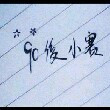 90後小裏